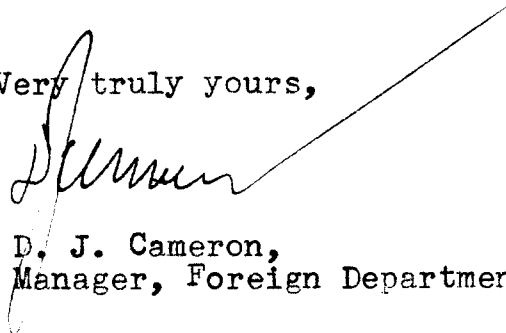 Very truly yours,
D. J. Cameron,
Manager, Foreign Departmen